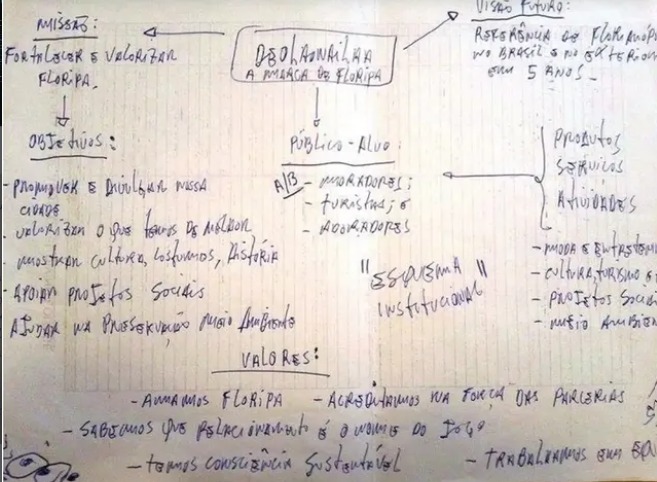 MISSÃO:
FORTALECER E VALORIZAR
FLORIPA.
DEOLHONAILHA
A MARCA DE FLORIPA
VISÃO FUTURO:
REFERÊNCIA DE
NO BRASIL E NO EXTERIOR
EM 5 ANOS.
OBJETIVOS:
- PROMOVER E DIVULGAR NOSSA
CIDADE
- VALORIZAR O QUE TEMOS DE MELHOR
- MOSTRAR CULTURA, COSTUMES, HISTÓRIA
- APOIAR PROJETOS SOCIAIS
AJUDAR NA PRESERVAÇÃO MEIO AMBIENTE
PÚBLICO-ALVO:
A/B - MORADORES;
- TURISTAS; E
- ADORADORES
"ESQUEMA
INSTITUCIONAL"
PRODUTOS
SERVIÇOS
ATIVIDADES
- MODA E
- CULTURA, TURISMO E
- PROJETOS
- MEIO
VALORES:
- AMAMOS FLORIPA - ACREDITAMOS NA FORÇA DAS PARCERIAS
- SABEMOS QUE RELACIONAMENTO É O NOME DO JOGO
- TEMOS CONSCIÊNCIA SUSTENTÁVEL - TRABALHAMOS EM